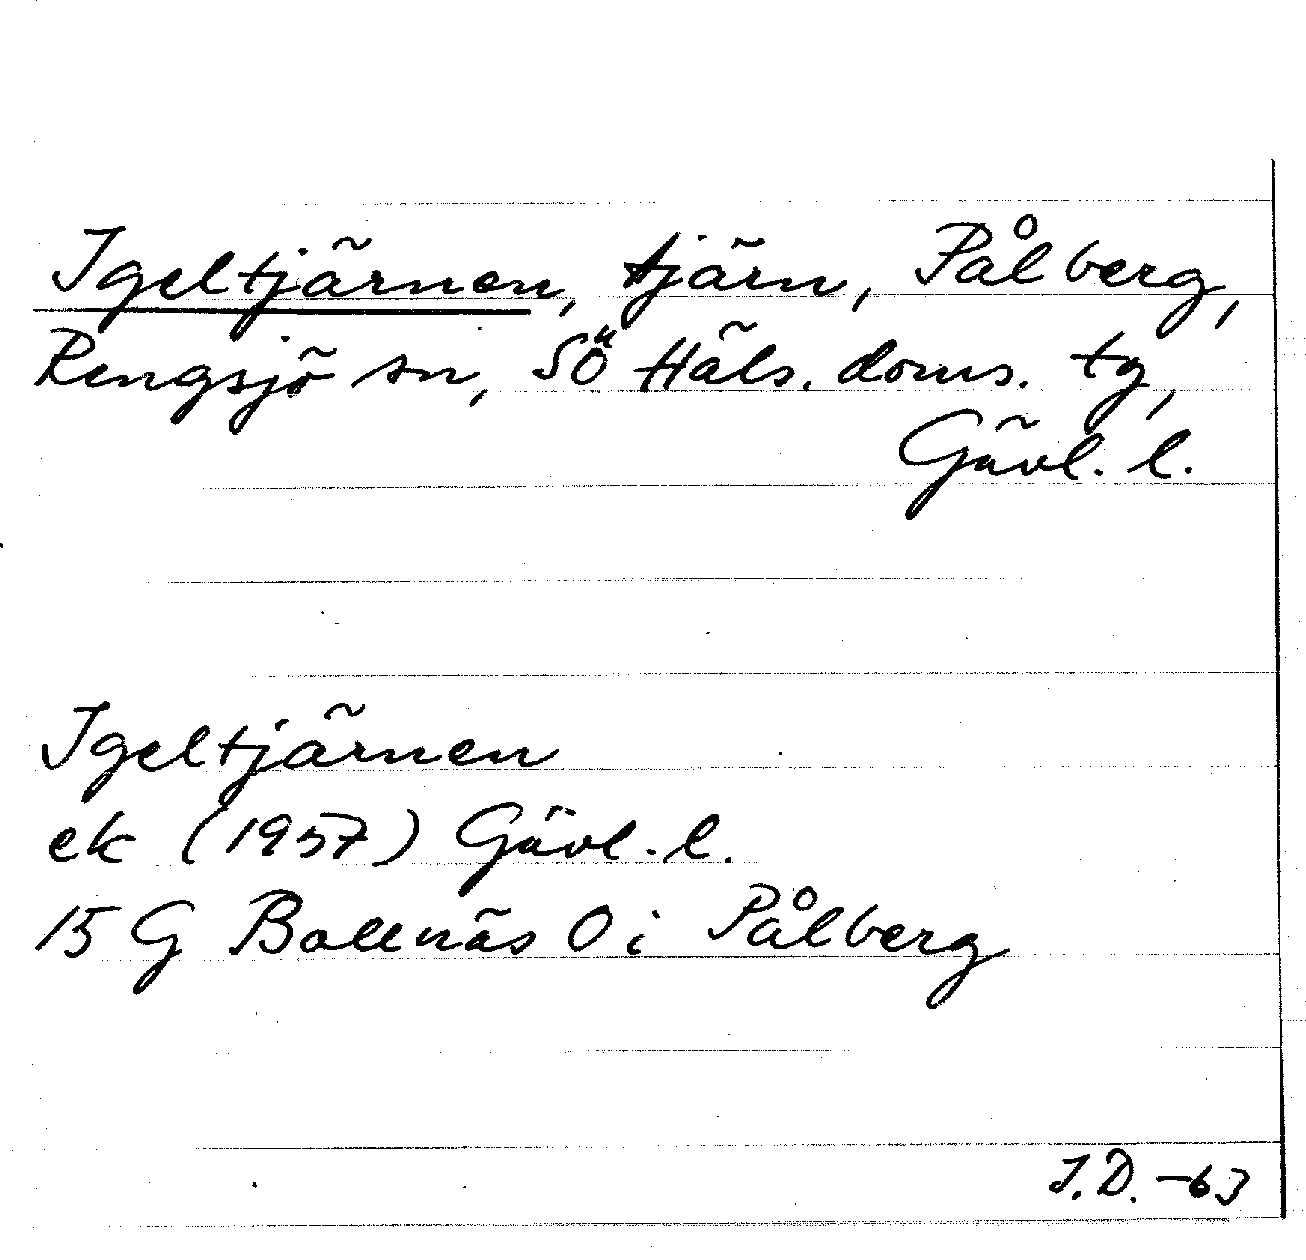 Igeltjärnen, tjärn, Pålberg,
Rengsjö sn, SÖ Häls. doms. tg,
Gävl. l.
Igeltjärnen
ek (1957) Gävl. l.
15 G Bollnäs 0 i Pålberg
I.D. -63